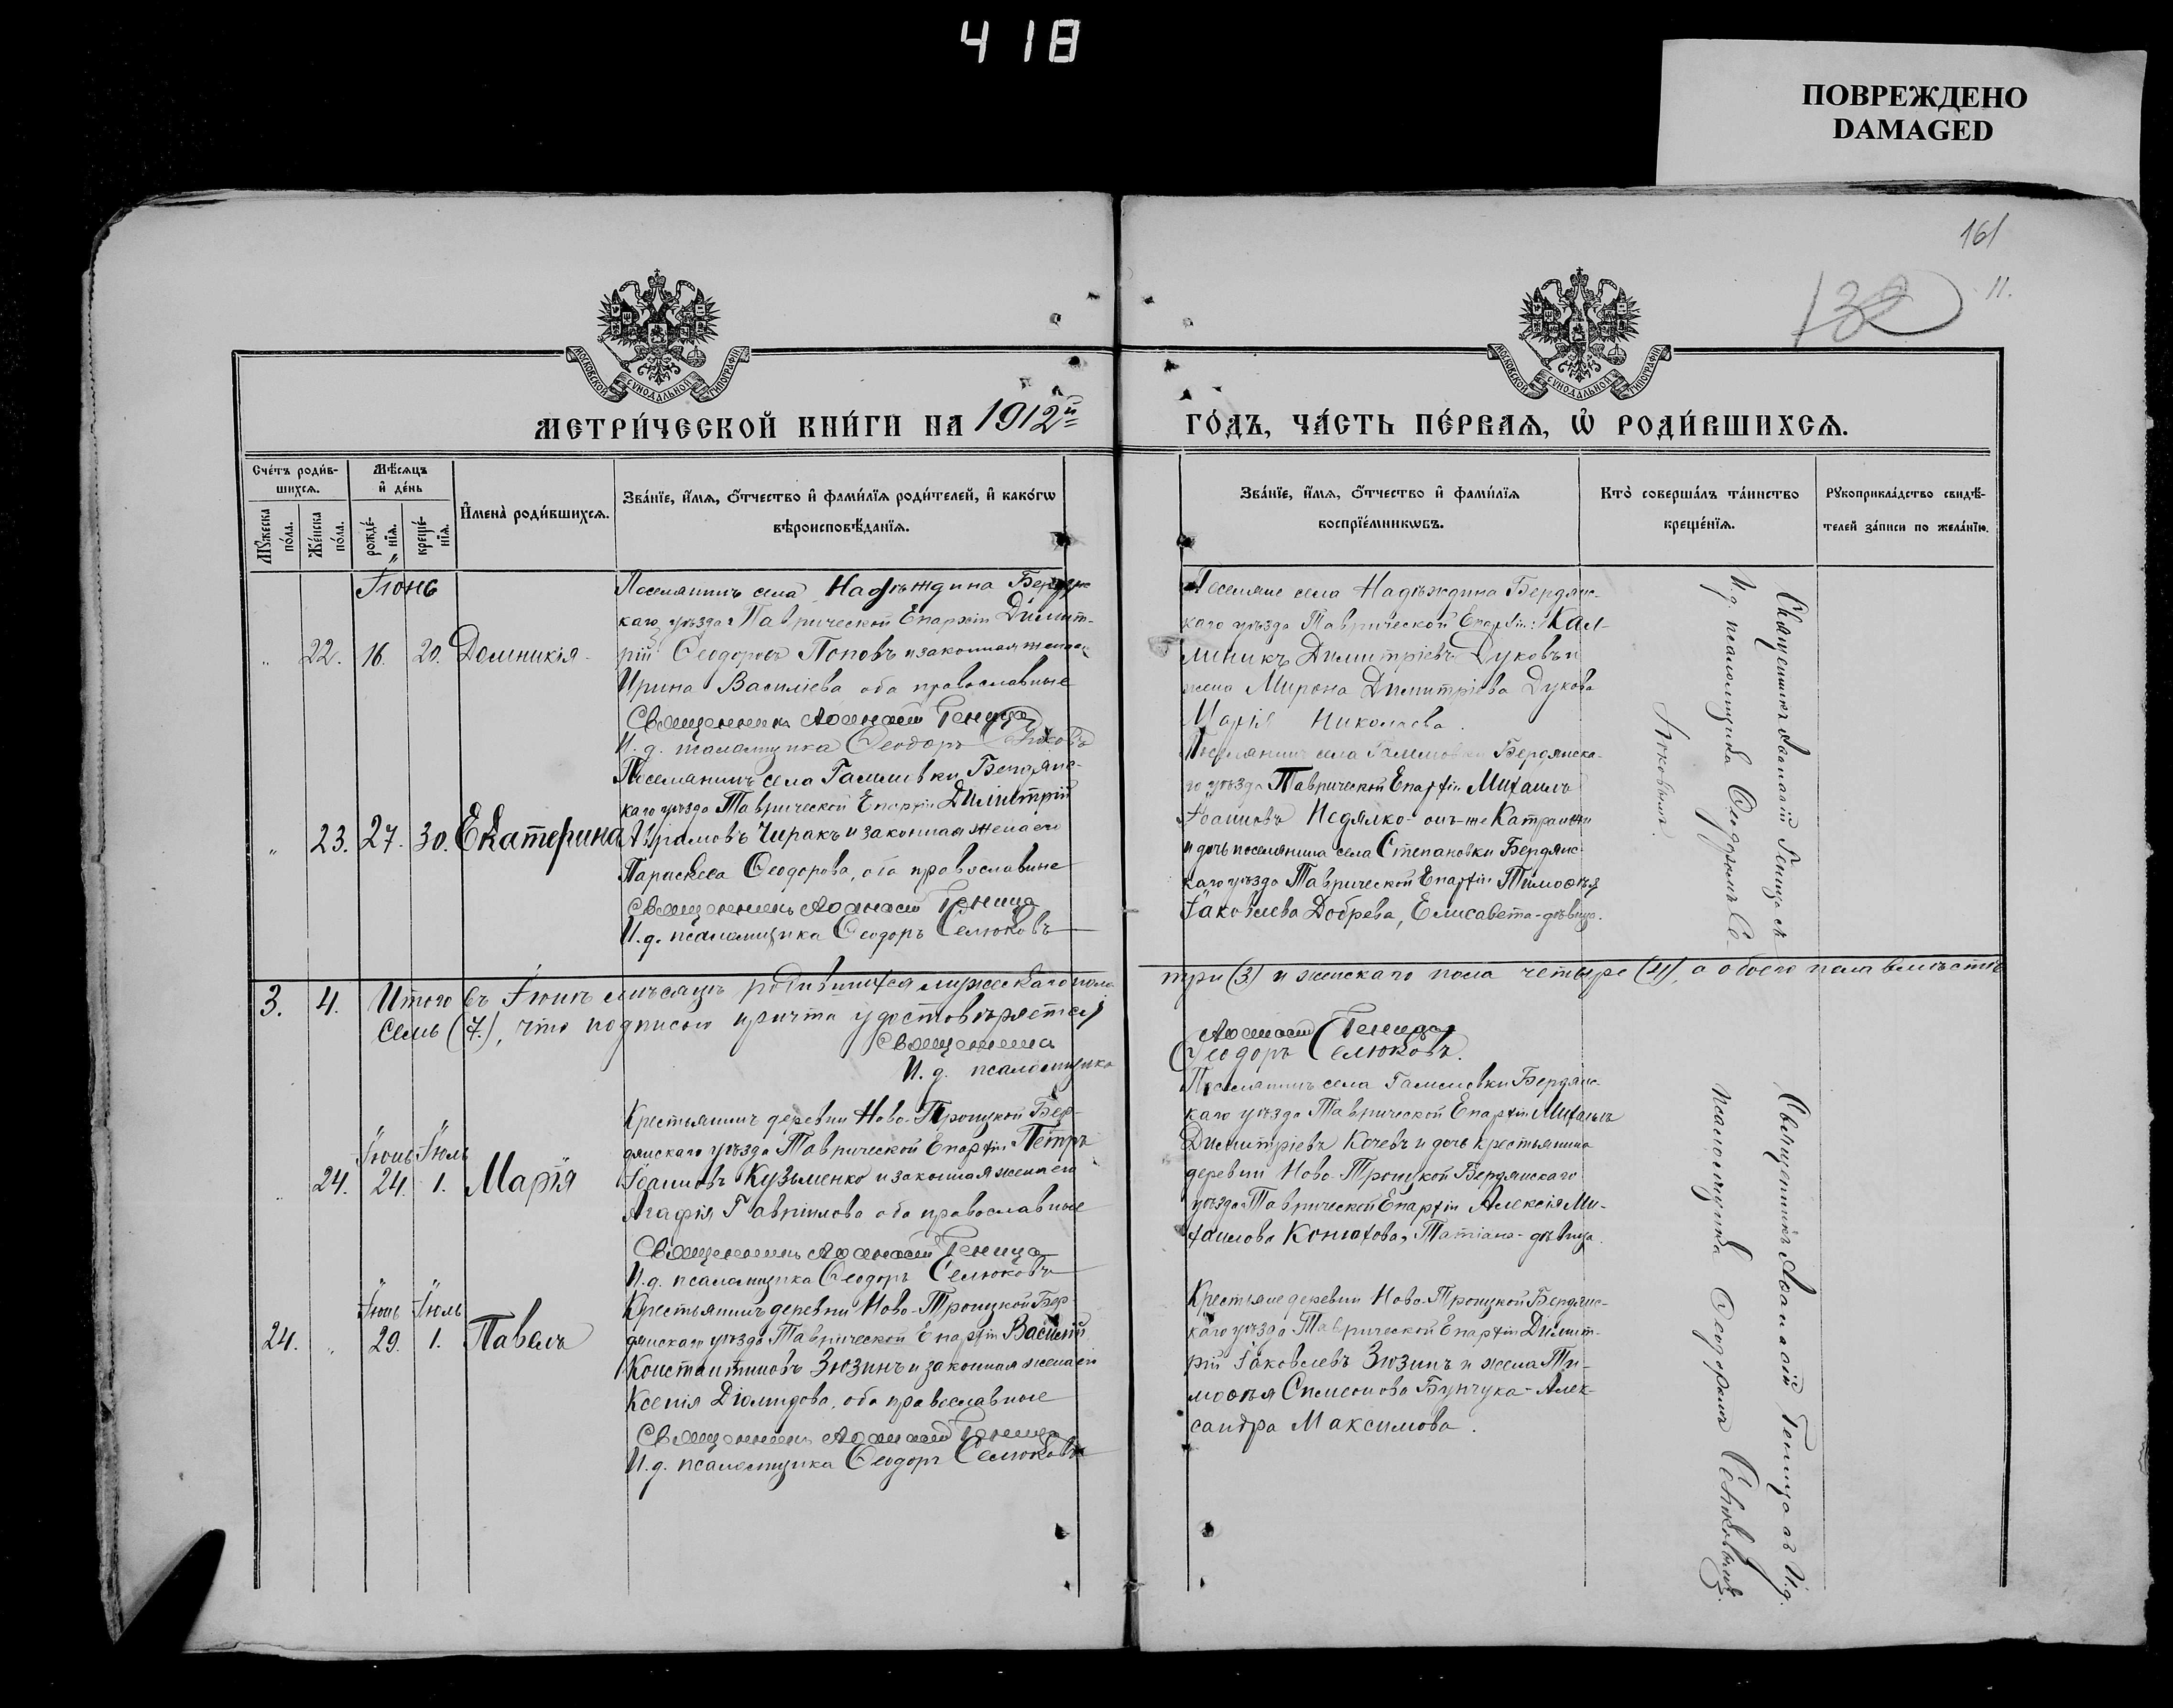 418
ПОВРЕЖДЕНО
DAMAGED
161
132
11.
МОСКОВСКОЙ СѴНОДАЛЬНОЙ ТИПОГРАФІИ
МОСКОВСКОЙ СѴНОДАЛЬНОЙ ТИПОГРАФІИ
МЕТРИ́ЧЕСКОЙ КНИ́ГИ НА 1912й
ГО́ДЪ, ЧА́СТЬ ПЕ́РВАѦ, Ѡ҆ РОДИ́ВШИХСѦ.
Сче́тъ роди́в-
шихсѧ.
Мꙋ́жеска по́ла.
Же́нска по́ла.
Мѣ́сѧцъ
и҆ де́нь
рожде́-нїѧ.
креще́-нїѧ.
И҆мена̀ роди́вшихсѧ.
Зва́нїе, и҆́мѧ, ѻ҆́тчество и҆ фами́лїѧ роди́телей, и҆ како́гѡ
вѣроисповѣ́данїѧ.
Зва́нїе, и҆́мѧ, ѻ҆́тчество и҆ фами́лїѧ
воспрїе́мникѡвъ.
Кто̀ соверша́лъ та́инство
креще́нїѧ.
Рꙋкоприкла́дство свидѣ́-
телей за́писи по жела́нїю.
Іюнь
„ 22. 16. 20. Домникія
Поселянинъ села Надѣждина Бердянс-
каго уѣзда Таврической Епархіи Димит-
рій Ѳеодоровъ Поповъ и законная жена его
Ирина Василіева оба православные
Священникъ Аѳанасій Геница
И. д. псаломщика Ѳеодоръ Селюковъ
Поселяне села Надѣждина Бердянс-
каго уѣзда Таврической Епархіи: Кал-
линикъ Димитріевъ Дуковъ и
жена Мирона Димитріева Дукова
Марія Николаева.
Священникъ Аѳанасій Геница съ
И. д. псаломщика Ѳеодоромъ Се-
люковымъ
„ 23. 27. 30. Екатерина
Поселянинъ села Гамовки Бердянс-
каго уѣзда Таврической Епархіи Димитрій
Авраамовъ Чиракъ и законная жена его
Параскева Ѳеодорова, оба православные
Священникъ Аѳанасій Геница
И. д. псаломщика Ѳеодоръ Селюковъ
Поселянинъ села Бердянска-
го уѣзда Таврической Епархіи Михаилъ
Іоанновъ Недялко- онъ-же
и дочь поселянина села Степановки Бердянс-
каго уѣзда Таврической Епархіи Тимоѳея
Іаковлева Добрева, Елисавета-дѣвица.
3. 4. Итого въ Іюнѣ мѣсяцѣ родившихся мужескаго пола
три (3) и женскаго пола четыре (4), а обоего пола вмѣстѣ
семь (7.), что подписью причта удостовѣряется
Священникъ Аѳанасій Геница
И. д. псаломщика Ѳеодоръ Селюковъ.
Іюнь Іюль
„ 24. 24. 1. Марія
Крестьянинъ деревни Ново-Троицкой Бер-
дянскаго уѣзда Таврической Епархіи Петръ
Іоанновъ Кузьменко и законная жена его
Агафія Гавріилова оба православные
Священникъ Аѳанасій Геница
И. д. псаломщика Ѳеодоръ Селюковъ
Поселянинъ села Бердянс-
каго уѣзда Таврической Епархіи Михаилъ
Димитріевъ Кочевъ и дочь крестьянина
деревни Ново-Троицкой Бердянскаго
уѣзда Таврической Епархіи Алексія Ми-
хаилова Татіана-дѣвица.
Священникъ Аѳанасій Геница съ И. д.
псаломщика Ѳеодоромъ Селюковымъ.
Іюнь Іюль
24. „ 29. 1. Павелъ
Крестьянинъ деревни Ново-Троицкой Бер-
дянскаго уѣзда Таврической Епархіи Василій
Константиновъ Зюзинъ и законная жена его
Ксенія Діомидова, оба православные
Священникъ Аѳанасій Геница
И. д. псаломщика Ѳеодоръ Селюковъ
Крестьяне деревни Ново-Троицкой Бердянс-
каго уѣзда Таврической Епархіи Димит-
рій Іаковлевъ Зюзинъ и жена Ти-
моѳея Симеонова Бунчука- Алек-
сандра Максимова.